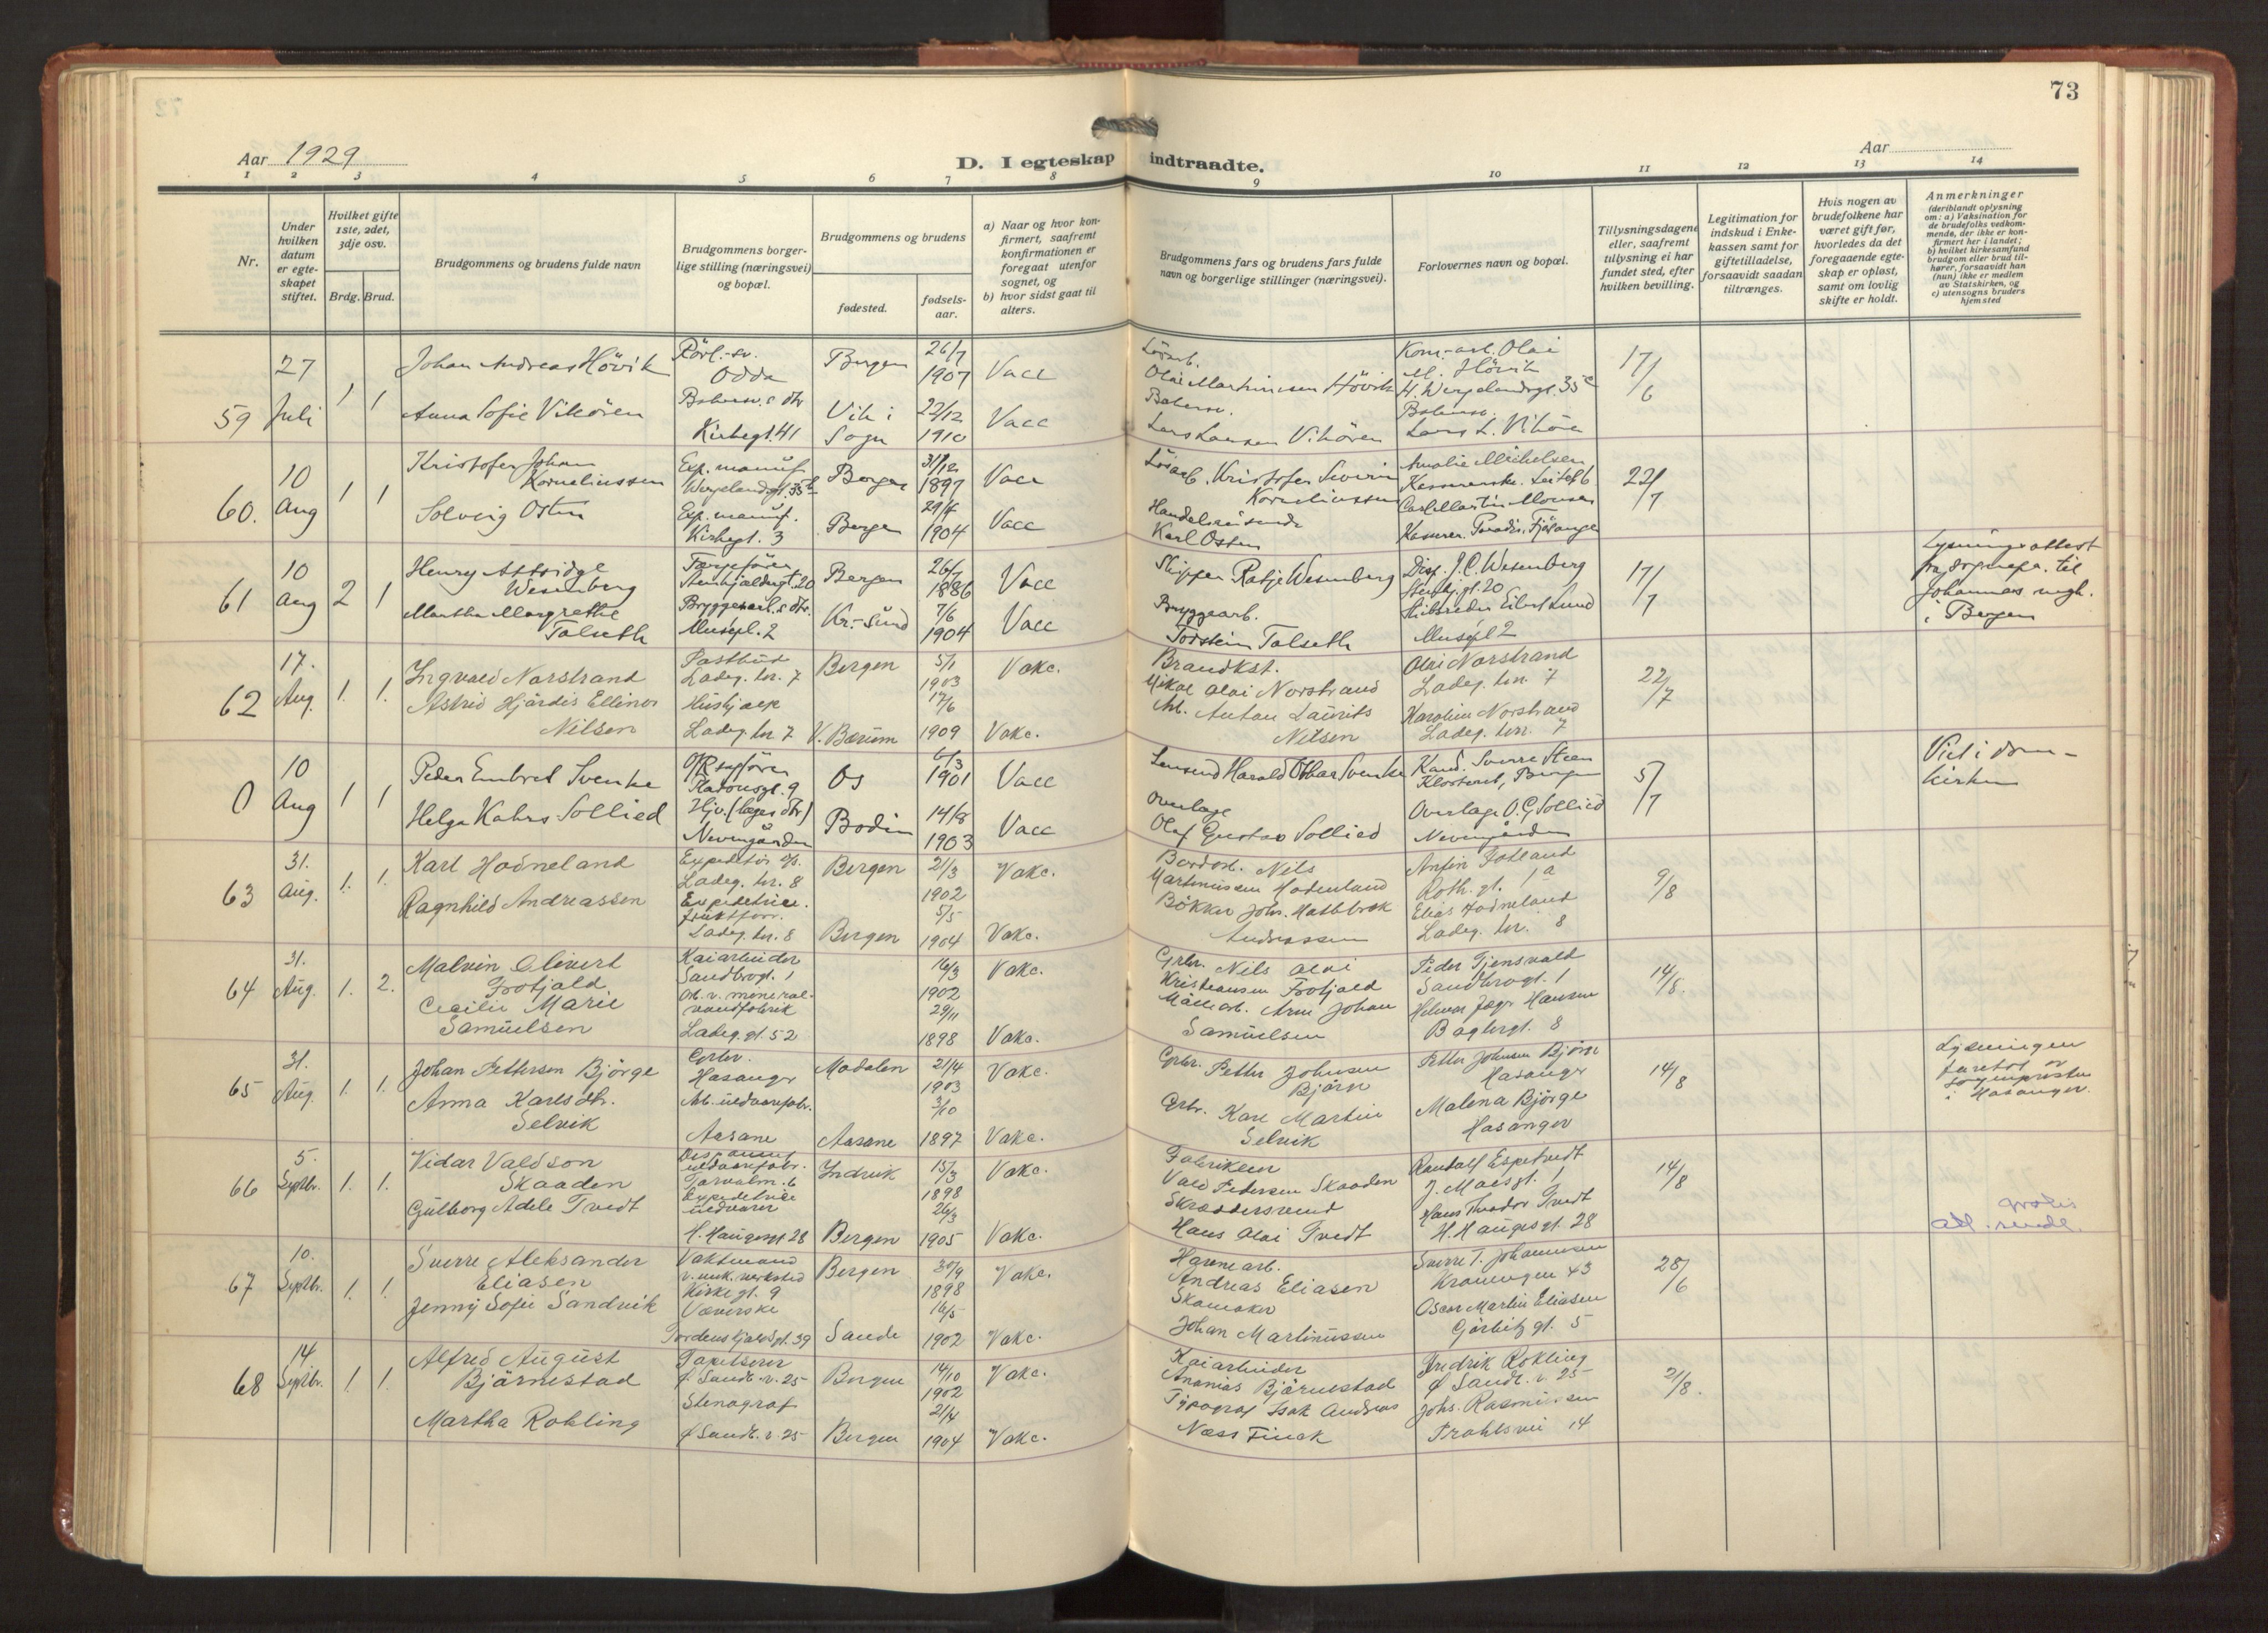 73
Aar 1929
D. I egteskap indtraadte.
Aar
1 2 3 4 5 6 7 8 9 10 11 12 13 14
Nr.
Under hvilken datum er egteskapet stiftet.
Hvilket gifte 1ste, 2det, 3dje osv.
Brdg. Brud.
Brudgommens og brudens fulde navn
Brudgommens borgerlige stilling (næringsvei) og bopæl.
Brudgommens og brudens
fødested.
fødselsaar.
a) Naar og hvor konfirmert, saafremt konfirmationen er foregaat utenfor sognet, og
b) hvor sidst gaat til alters.
Brudgommens fars og brudens fars fulde navn og borgerlige stillinger (næringsvei).
Forlovernes navn og bopæl.
Tillysningsdagene eller, saafremt tillysning ei har fundet sted, efter hvilken bevilling.
Legitimation for indskud i Enkekassen samt for giftetilladelse, forsaavidt saadan tiltrænges.
Hvis nogen av brudefolkene har været gift før, hvorledes da det foregaaende egteskap er opløst, samt om lovlig skifte er holdt.
Anmerkninger
(deriblandt oplysning om: a) Vaksination for de brudefolks vedkommende, der ikke er konfirmert her i landet; b) hvilket kirkesamfund brudgom eller brud tilhører, forsaavidt han (nun) ikke er medlem av Statskirken, og c) utensogns bruders hjemsted
59 27 Juli 1 1 Johan Andreas Hövik Odda Bergen 26/7 1907 Vacc Olai Martinusen Hövik Olai M. Hövik H. Wergelandsgt. 35 17/6
Anna Sofie Vikören Kirkegt. 41 Vik i Sogn 22/12 1910 Vacc Lars Larsen Vikören Lars L. Vikören
60. 10 Aug 1 1 Kristofer Johan Korneliussen Exp. manuf. Wergelandsgt. 35 Bergen 31/12 1897 Vacc Kristofer Severin Korneliussen Amalie Michelsen 22/7
Solveig Osten Exp. manuf. Kirkegt. 3 Bergen 29/7 1904 Vacc Handelsreisende Karl Osten Carl Martin Monsen Kasserer, Paradis, Fjösanger
61 10 Aug 2 1 Henry Wesenberg Færgefører 20 Bergen 26/7 1886 Vacc Skipper Ratje Wesenberg Disp. J. C. Wesenberg 20 17/7 Lysningsattest til Johannes i Bergen
Martha Margrethe Talseth Bryggearb.s dtr. Musépl. 2 Kr.-Sund 7/6 1904 Vacc Bryggearb. Torstein Talseth Skibsreder Eilert Lund Musépl 2
62 17. Aug. 1. 1. Ingvald Norstrand Postbud Ladeg. ter. 7 Bergen 5/1 1903 Vakc. Brandkst. Mikal Olai Norstrand Olai Norstrand Ladeg. ter. 7 22/7
Astrid Hjördis Ellinor Nilsen Hushjælp Ladeg. ter 7 V. Bærum 17/6 1909 Vakc. Arb. Anton Laurits Nilsen Karoline Norstrand Ladeg. terr. 7
0 10 Aug 1 1 Peder Embret Svenke Os 6/3 1901 Vacc Lensmd Harald Othar Svenke Kand. Sverre Steen Klosteret, Bergen 5/7 Viet i domkirken
Helga Kahrs Sollied Hjv. (læges dtr) Nevengården Bodin 14/8 1903 Vacc Overlæge Olaf Gustav Sollied Overlæge O. G. Sollied Nevengården
63 31. Aug. 1. 1. Karl Hodneland Expeditör Ladeg. ter. 8 Bergen 21/3 1902 Vakc. Nils Martinussen Hodneland Roth. gt. 1a 9/8
Ragnhild Andreassen Expeditrice. fruktforr. Ladeg. ter. 8 Bergen 5/5 1904 Vakc. Bökker Joh. Andreassen Elias Hodneland Ladeg. ter. 8
64 31. Aug. 1. 2. Malvin Olivert Frotjold Kaiarbeider Sandbrogt. 1 16/3 1902 Vakc. Grbr. Nils Olai Kristiansen Frotjold Peder Tjensvold Sandbrogt. 1 14/8.
Cecilie Marie Samuelsen Arb. v. mineralvandfabrik Ladeg. gt. 52 29/11 1898 Vakc. Arne Johan Samuelsen Hansen Baglergt. 8
65 31. Aug. 1. 1. Johan Pettersen Björge Grbr. Hosanger Modalen 21/4 1903 Vakc. Grbr. Petter Johnsen Björge Petter Johnsen Björge Hosanger 14/8 Lysningen foretat av sognepresten i Hosanger.
Anna Karlsdtr. Selvik Arb. uldvarefabr. Aasane Aasane 3/10 1897 Vakc. Grbr. Karl Martin Selvik Malena Björge Hosanger
66 5. Septbr. 1. 1. Vidar Valdson Skaaden uldvarefabr. Torvalm. 6 Inderik 15/3 1898 Vakc. Fabrikeier Vald Pedersen Skaaden Randolf Espetvedt 14/8
Gulborg Adele Tvedt Expeditrice uldvarer H. Haugesgt 28 Bergen 26/3 1905 Vakc. Skræddersvend Hans Olai Tvedt Hans Theodor Tvedt H. Haugesgt. 28 gratis
67 10. Septbr. 1. 1. Sverre Aleksander Eliasen Vaktmand v. mek. verksted Kirkegt. 9 Bergen 30/9 1898 Vakc. Havnearb. Andreas Eliasen Sverre T. Johannesen 43 28/6
Jenny Sofie Sandvik Væverske Tordenskjoldsgt. 39 Sande 16/5 1902 Vakc. Skomaker Johan Martinussen Oscar Martin Eliasen Görbitz gt. 5
68 14 Septbr. 1. 1. Alfred August Björnestad Tapetserer Ø. Sandv. v. 25 Bergen 14/10 1902 Vakc. Kaiarbeider Ananias Björnestad Fredrik Rokling Ø Sandv. v. 25 21/8.
Martha Rokling Stenograf Ø Sandv. v. 25 Bergen 21/4 1904 Vakc. Typograf Isak Andreas Næss Finck Johs. Rasmussen Prahlsvei 14